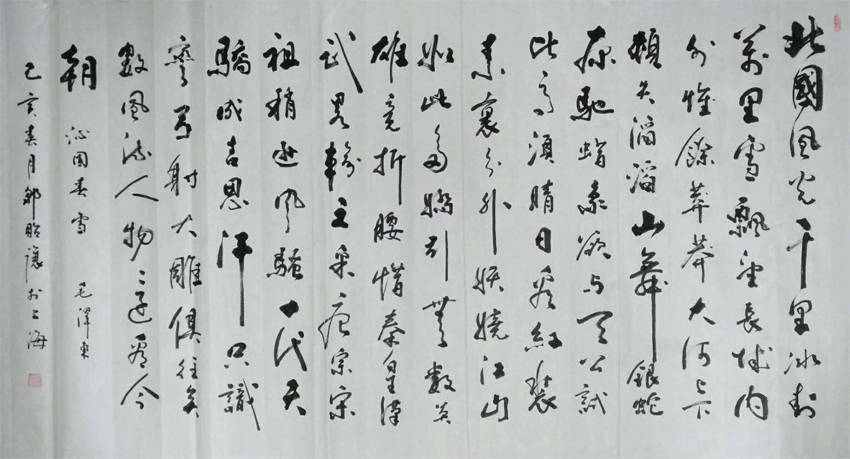 北國風光千里冰封
萬里雪飄望長城内
外惟餘莽莽大河上下
頓失滔滔山舞銀蛇
原馳蠟象欲与天公試
比高須晴日看紅裝
素裹分外妖嬈江山
如此多嬌引無數英
雄竞折腰惜秦皇漢
武畧輸文采唐宗宋
祖稍遜風騷一代天
驕成吉思汗只識
彎弓射大雕俱往矣
數風流人物還看今
朝 沁園春雪 毛澤東
己亥春月邹昭讓於上海